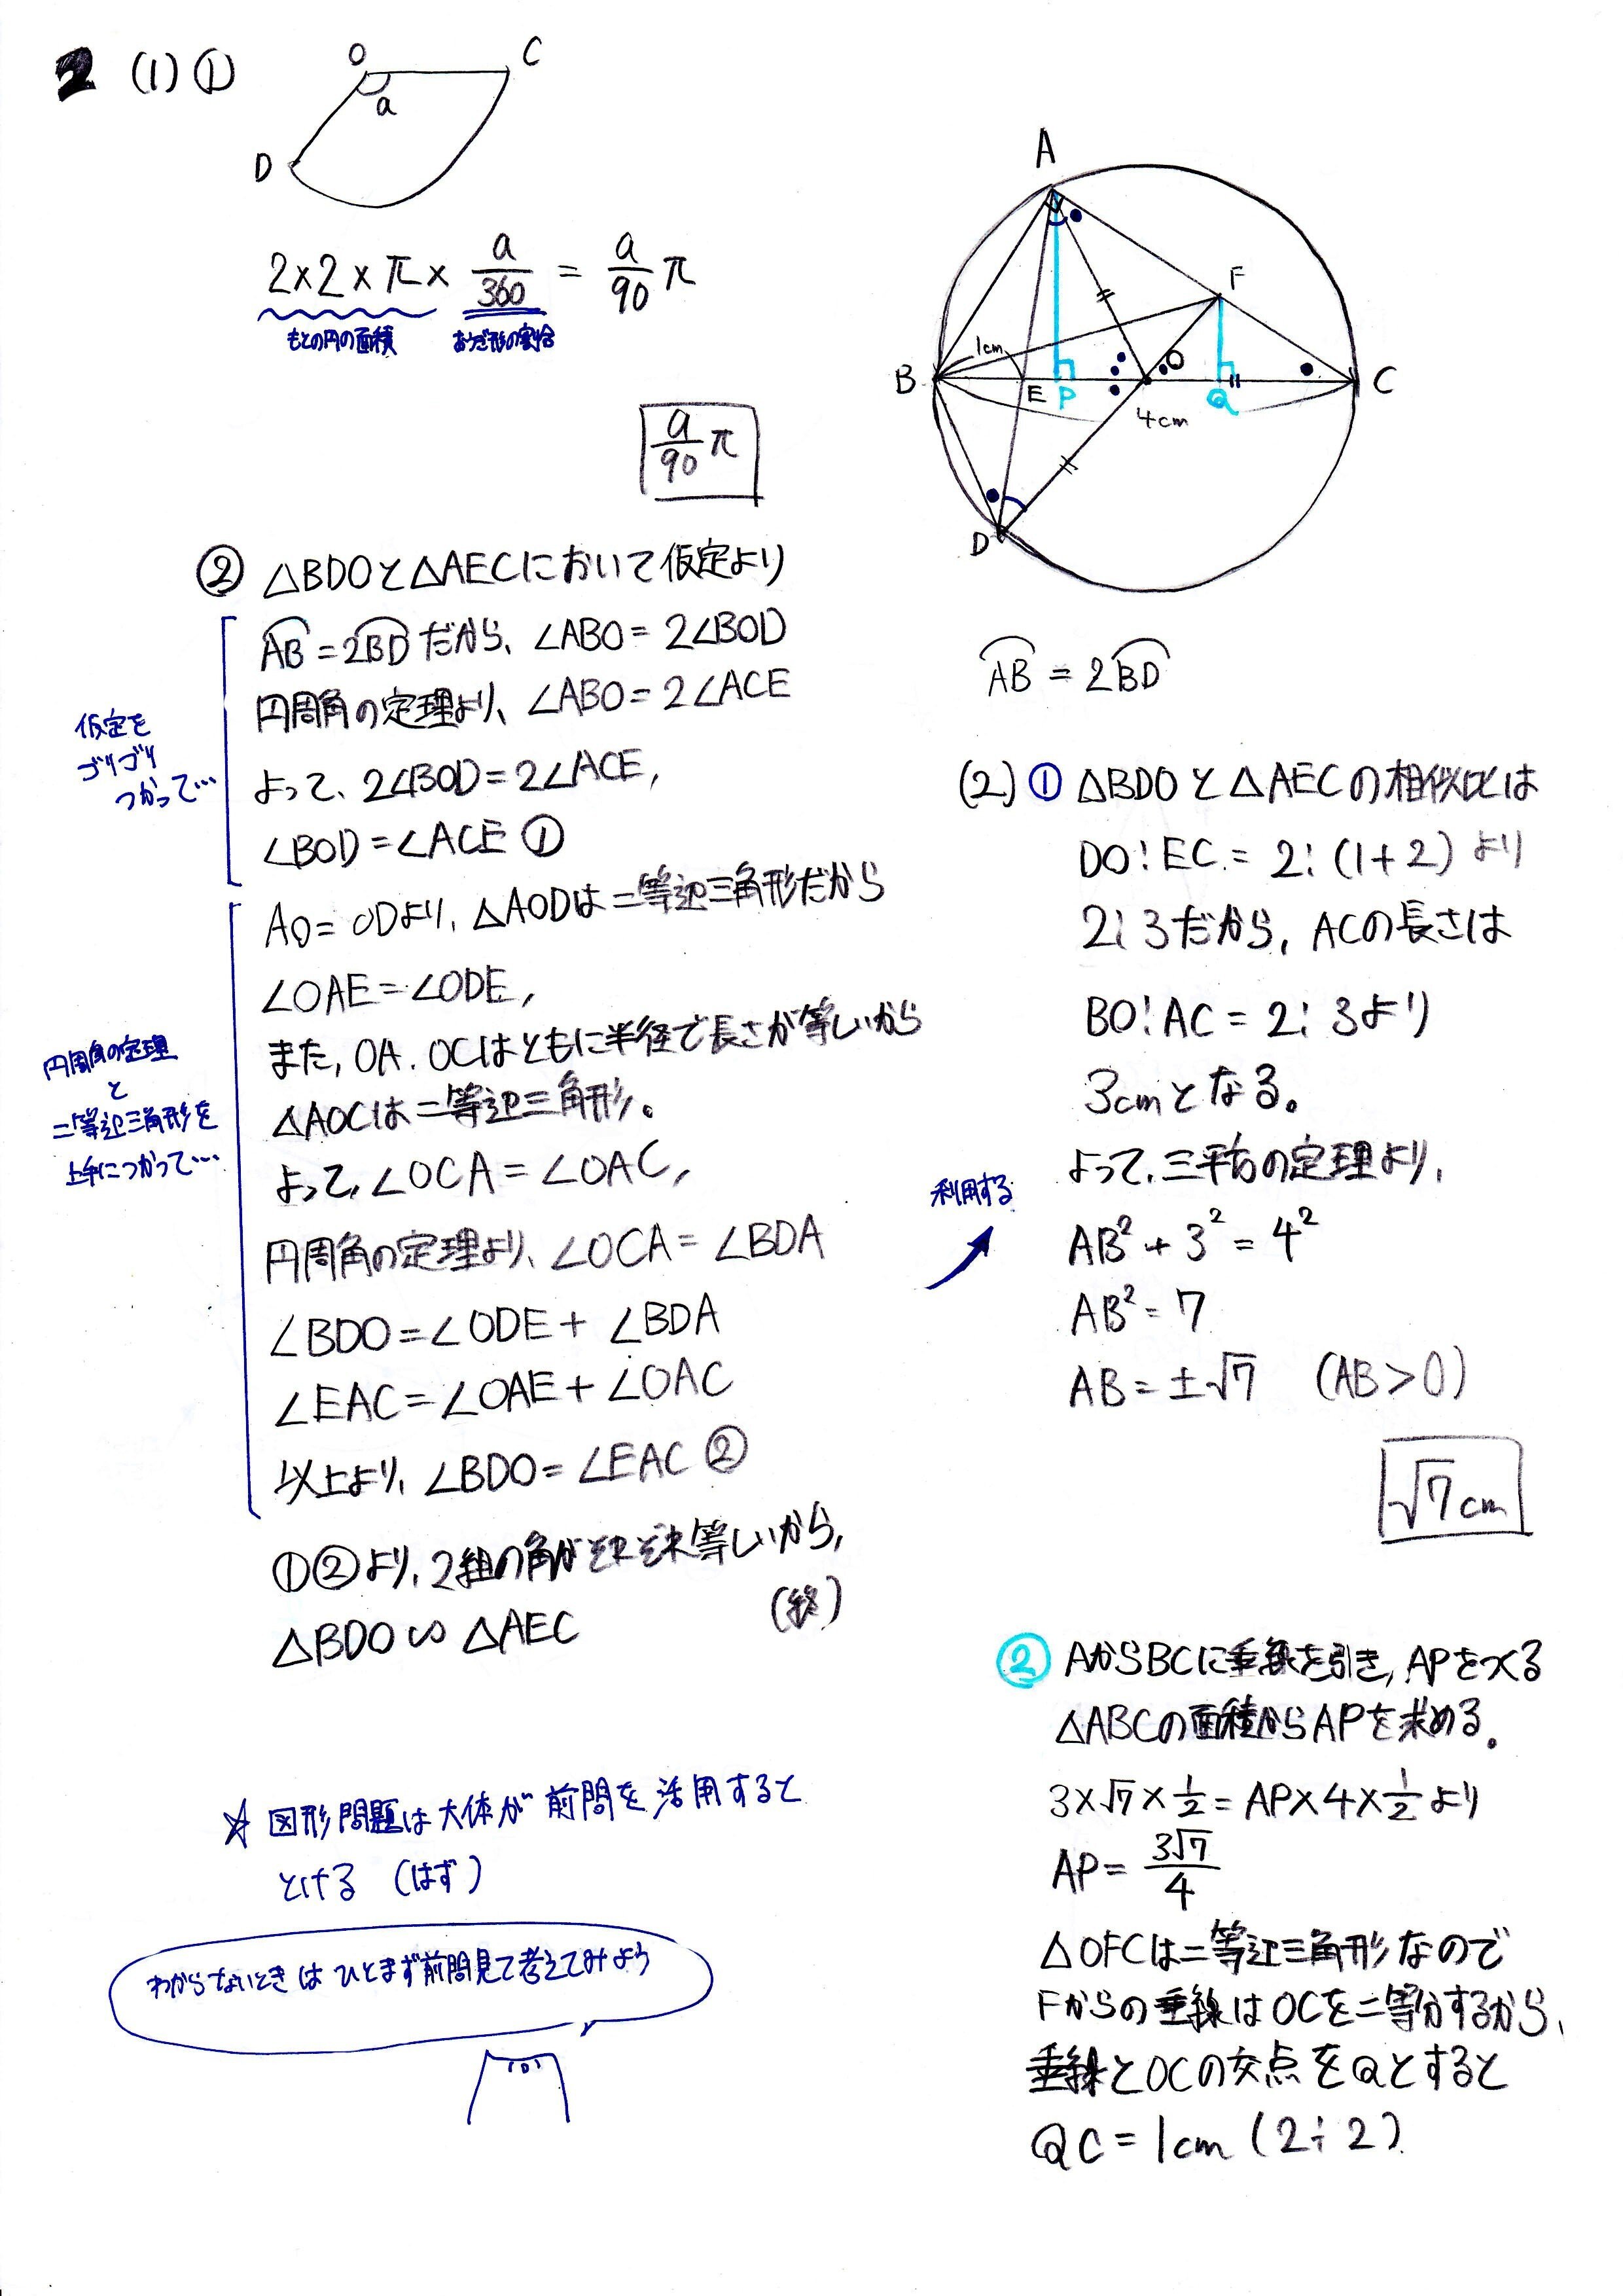 2 (1) ①
O
C
a
D
2×2×π× a/360 = a/90 π
もとの円の面積
おうぎ形の割合
a/90 π
② △BDOと△AECにおいて仮定より
AB = 2BD だから、∠ABO = 2∠BOD
円周角の定理より、∠ABO = 2∠ACE
よって、2∠BOD = 2∠ACE,
∠BOD = ∠ACE ①
仮定を
ゴリゴリ
つかって…
AO = ODより、△AODは二等辺三角形だから
∠OAE = ∠ODE,
また, OA. OCはともに半径で長さが等しいから
△AOCは二等辺三角形。
よって, ∠OCA = ∠OAC,
円周角の定理より、∠OCA = ∠BDA
∠BDO = ∠ODE + ∠BDA
∠EAC = ∠OAE + ∠OAC
以上より、∠BDO = ∠EAC ②
円周角の定理
と
二等辺三角形を
上手につかって…
①②より、2組の角がそれぞれ等しいから,
△BDO∽△AEC
(終)
☆ 図形問題は大体が前問を活用すると
とける (はず)
わからないときはひとまず前問見て考えてみよう
A
F
B
1cm
E
P
O
Q
C
4cm
D
AB = 2BD
(2) ① △BDOと△AECの相似比は
DO:EC = 2:(1+2) より
2:3だから, ACの長さは
BO:AC = 2:3より
3cmとなる。
よって、三平方の定理より、
利用する
AB² + 3² = 4²
AB² = 7
AB = ±√7 (AB>0)
√7cm
② AからBCに垂線を引き, APをつくる
△ABCの面積からAPを求める。
3×√7×1/2 = AP×4×1/2 より
AP = 3√7/4
△OFCは二等辺三角形なので
Fからの垂線はOCを二等分するから、
垂線とOCの交点をQとすると
QC = 1cm (2÷2)